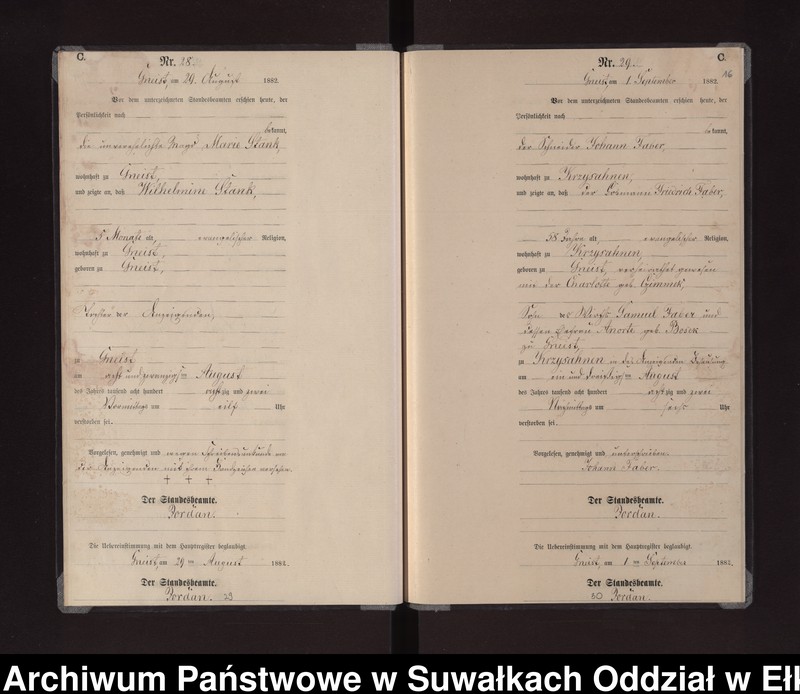 C.
Nr. 28.
Gneist, am 29. August 1882.
Vor dem unterzeichneten Standesbeamten erschien heute, der
Persönlichkeit nach
bekannt,
die unverehelichte Magd Marie Stank,
wohnhaft zu Gneist,
und zeigte an, daß Wilhelmine Stank,
5 Monate alt, evangelischer Religion,
wohnhaft zu Gneist,
geboren zu Gneist,
Tochter der Anzeigenden,
zu Gneist
am acht und zwanzigsten August
des Jahres tausend acht hundert achtzig und zwei
Vormittags um elf Uhr
verstorben sei.
Vorgelesen, genehmigt und wegen Schreibensunkunde von
der Anzeigenden mit ihrem Handzeichen versehen.
† † †
Der Standesbeamte.
Jordan.
Die Uebereinstimmung mit dem Hauptregister beglaubigt.
Gneist, am 29ten August 1882.
Der Standesbeamte.
Jordan. 29
C.
16
Nr. 29.
Gneist, am 1. September 1882.
Vor dem unterzeichneten Standesbeamten erschien heute, der
Persönlichkeit nach
bekannt,
der Schneider Johann Faber,
wohnhaft zu Krzysahnen,
und zeigte an, daß der Losmann Friedrich Faber,
58 Jahre alt, evangelischer Religion,
wohnhaft zu Krzysahnen,
geboren zu Gneist, verheirathet gewesen
mit der Charlotte geb.
Sohn des Wirths Samuel Faber und
dessen Ehefrau geb.
zu Gneist,
zu Krzysahnen in des Anzeigenden Behausung
am ein und dreißigsten August
des Jahres tausend acht hundert achtzig und zwei
Nachmittags um sechs Uhr
verstorben sei.
Vorgelesen, genehmigt und unterschrieben.
Johann Faber.
Der Standesbeamte.
Jordan.
Die Uebereinstimmung mit dem Hauptregister beglaubigt.
Gneist, am 1ten September 1882.
Der Standesbeamte.
30 Jordan.
Archiwum Państwowe w Suwałkach Oddział w Eł